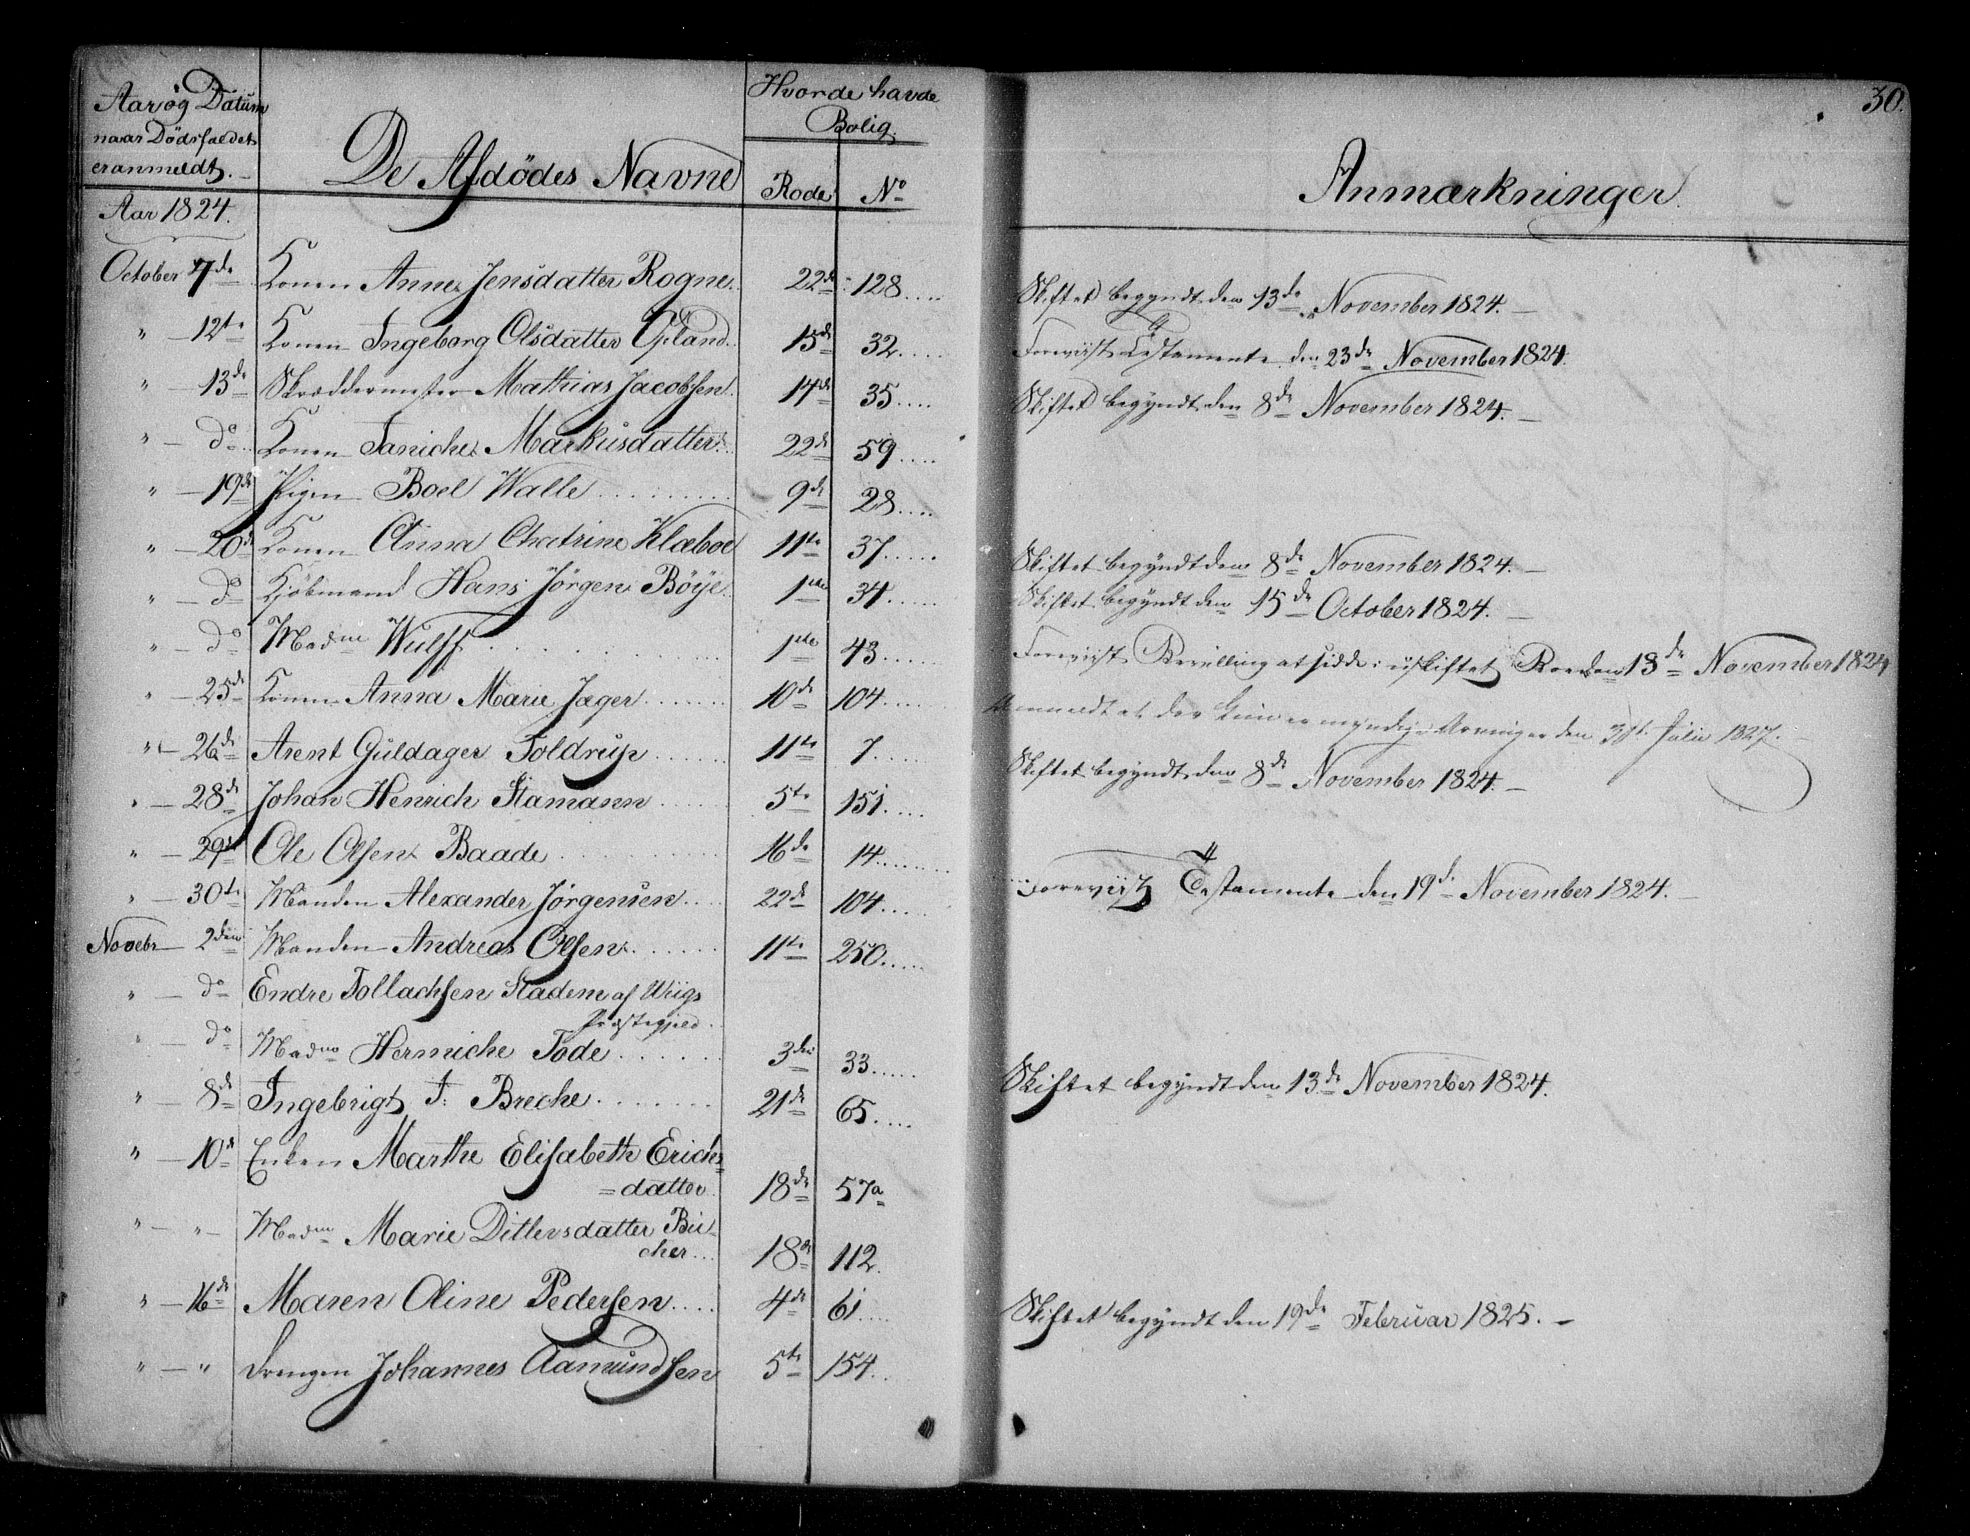 Aar og Datum
naar Dödsfaldet
er anmeldt.
De Afdödes Navne
Hvor de havde
Bolig.
Rode No
30.
Anmærkninger
Aar 1824.
October 7de Konen Anne Jensdatter Rogne 22de 128.... Skiftet begyndt den 13de November 1824. —
" — 12te Konen Ingeborg Olsdatter 15de 32.... Foreviist Testamente den 23de November 1824.
" — 13de Skræddermester Mathias Jacobsen 14de 35.... Skiftet begyndt den 8de November 1824. —
" — do Konen Janiche Markusdatter 22de 59....
" — 19de Pigen Boel Walle 9de 28....
" — 20de Konen Anna Chatrine Klæboe 11te 37..... Skiftet begyndt den 8de November 1824. —
" — do Kjöbmand Hans Jörgen Böye 1ste 34...... Skiftet begyndt den 15de October 1824. —
" — do Madme Wulff 1ste 43...... Foreviist Bevilling at sidde i uskiftet Boe den 18de November 1824
" — 25de Konen Anna Marie Jæger 10de 104..... Anmeldt at der kun er myndige Arvinger den Julii 1827. —
" — 26de Arent Guldager Toldrup 11te 7..... Skiftet begyndt den 8de November 1824. —
" — 28de Johan Henrich Stamann 5te 151....
" — 29de Ole Olsen Baade 16de 14......
" — 30te Manden Alexander Jörgensen 22de 104..... Foreviist Testamente den 19de November 1824. —
Novebr 2den Manden Andreas Olsen 11te 250.....
" — do Endre Tollachsen Stadem af Wiigs
Præstegjeld.
" — do Madme Hermiche Tode 3die 33..... Skiftet begyndt den 13de November 1824.
" — 8de Ingebrigt J: Breche 21de 65....
" — 10de Enken Marthe Elisabeth Erichs=
=datter 18de 57a
" — " — Madme Marie Ditlevsdatter Bü-
cher... 18de 112.
" — 16de Maren Oline Pedersen 4de 61.... Skiftet begyndt den 19de Februar 1825. —
" — " Drengen Johannes Aamundsen 5te 154..